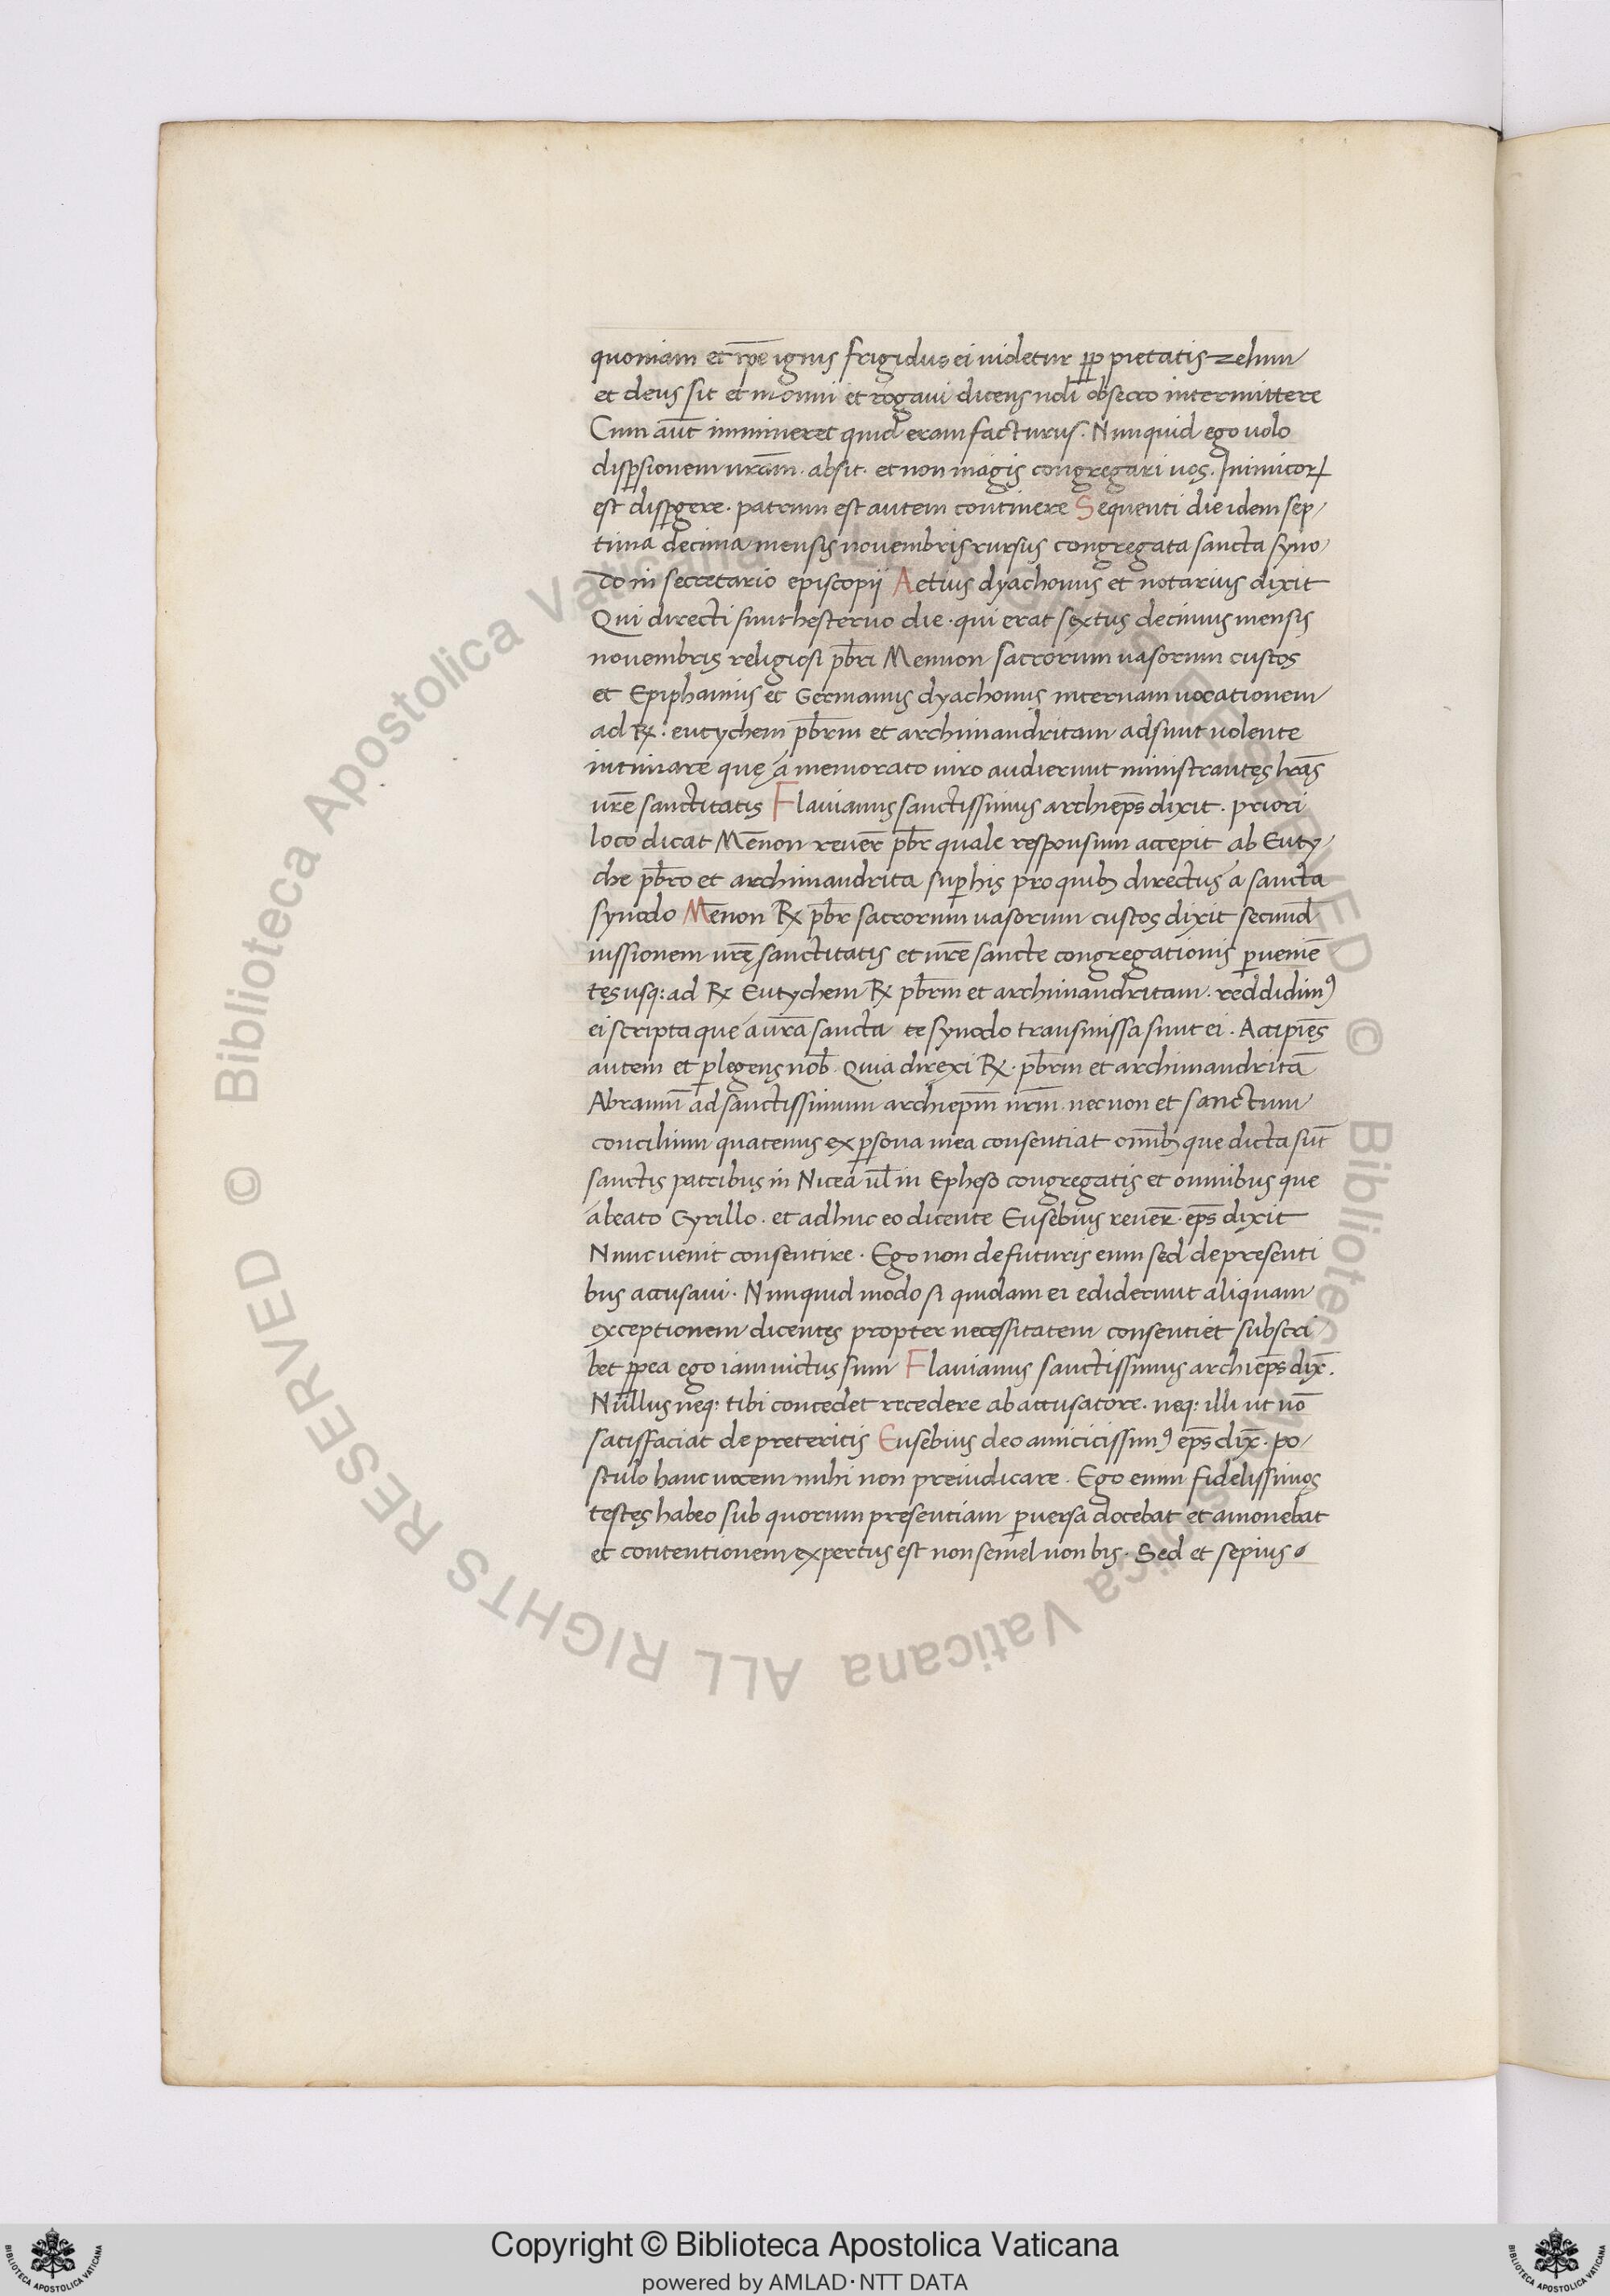 quoniam et ip̄e ignis frigidus ei uidetur ꝓp pietatis zelum
et deus sit et monui et rogaui dicens nōl obsecro intermittere
Cum aūt immineret quid eram facturus. Nunquid ego uolo
disꝑsionem urām. absit. et non magis congregari uos. Inimicoꝝ
est disꝑgere. patrum est autem continere Sequenti die idem sep
tima decima mensis novembris rursus congregata sancta syno
do in secretario episcopii Aetius dyachonus et notarius dixit
Qui directi sunt hesterno die. qui erat sextus decimus mensis
nouembris religiosi pbr̄i Memnon sacrorum uasorum custos
et Epiphanius et Germanus dyachonus internam uocationem
ad ℞. eutychem pbr̄m et archimandritam adsunt uolente
intimare quę a memorato uiro audierunt ministrantes lrās
urē sanctitatis Flauianus sanctissimus archiep̄s dixit. priori
loco dicat Mēnon reuer̄ pbr̄ quale responsum accepit ab Euty
che pbr̄o et archimandrita suꝑ his pro quibꝫ directus a sancta
synodo Mēnon ℞ pbr̄ sacrorum uasorum custos dixit secund̄
iussionem urę̄ sanctitatis et urē sancte congregationis ꝑueniē
tes usq: ad ℞ Eutychem ℞ pbr̄m et archimandritam. reddidimꝰ
ei scripta que a ur̄a sancta te synodo transmissa sunt ei. Accipiēs
autem et ꝑlegens nob̄. Quia direxi ℞. pbr̄m et archimandritā
Abramū ad sanctissimum archiepm̄ nrm̄. necnon et sanctum
concilium quatenus ex ꝑsona mea consentiat omībꝫ que dicta sūt
sanctis patribus in Nicea ul̄ in Epheso congregatis et omnibus que
a beato Cyrillo. et adhuc eo dicente Eusebius reuer̄. ep̄s dixit
Nunc uenit consentire. Ego non de futuris eum sed de presenti
bus accusaui. Nunquid modo si quidam ei ediderunt aliquam
exceptionem dicentes propter necessitatem consentiet subscri
bet ꝓpea ego iam uictus sum Flauianus sanctissimus archiep̄s dix̄.
Nullus neq: tibi concedet recedere ab accusatore. neq: illi ut nō
satisfaciat de preteritis Eusebius deo amicicissimꝰ ep̄s dix̄. po
stulo hanc uocem mihi non preiudicare. Ego enim fidelissimos
testes habeo sub quorum presentiam ꝑuersa docebat et amonebat
et contentionem expertus est non semel non bis. Sed et sepius
© Biblioteca Apostolica Vaticana ALL RIGHTS RESERVED © Biblioteca Apostolica Vaticana ALL RIGHTS RESERVED
Copyright © Biblioteca Apostolica Vaticana
powered by AMLAD·NTT DATA
BIBLIOTECA APOSTOLICA VATICANA
BIBLIOTECA APOSTOLICA VATICANA